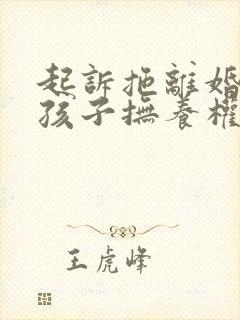 起訴拖離婚
孩子撫養權
王虎峰